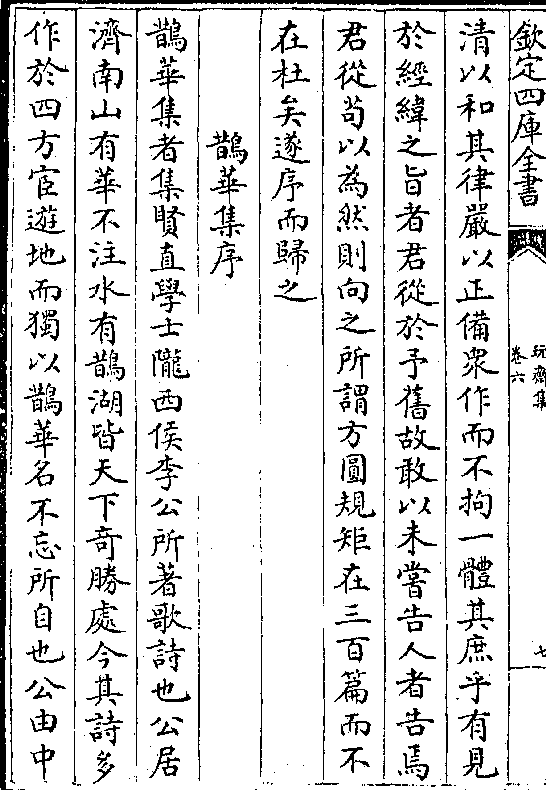 欽定四庫全書
玩齋集
卷六
七
清以和其律嚴以正備衆作而不拘一體其庶乎有見
於經緯之旨者君從於予舊故敢以未嘗告人者告焉
君從苟以為然則向之所謂方圓規矩在三百篇而不
在杜矣遂序而歸之
鵲華集序
鵲華集者集賢直學士隴西侯李公所著歌詩也公居
濟南山有華不注水有鵲湖皆天下奇勝處今其詩多
作於四方宦遊地而獨以鵲華名不忘所自也公由中